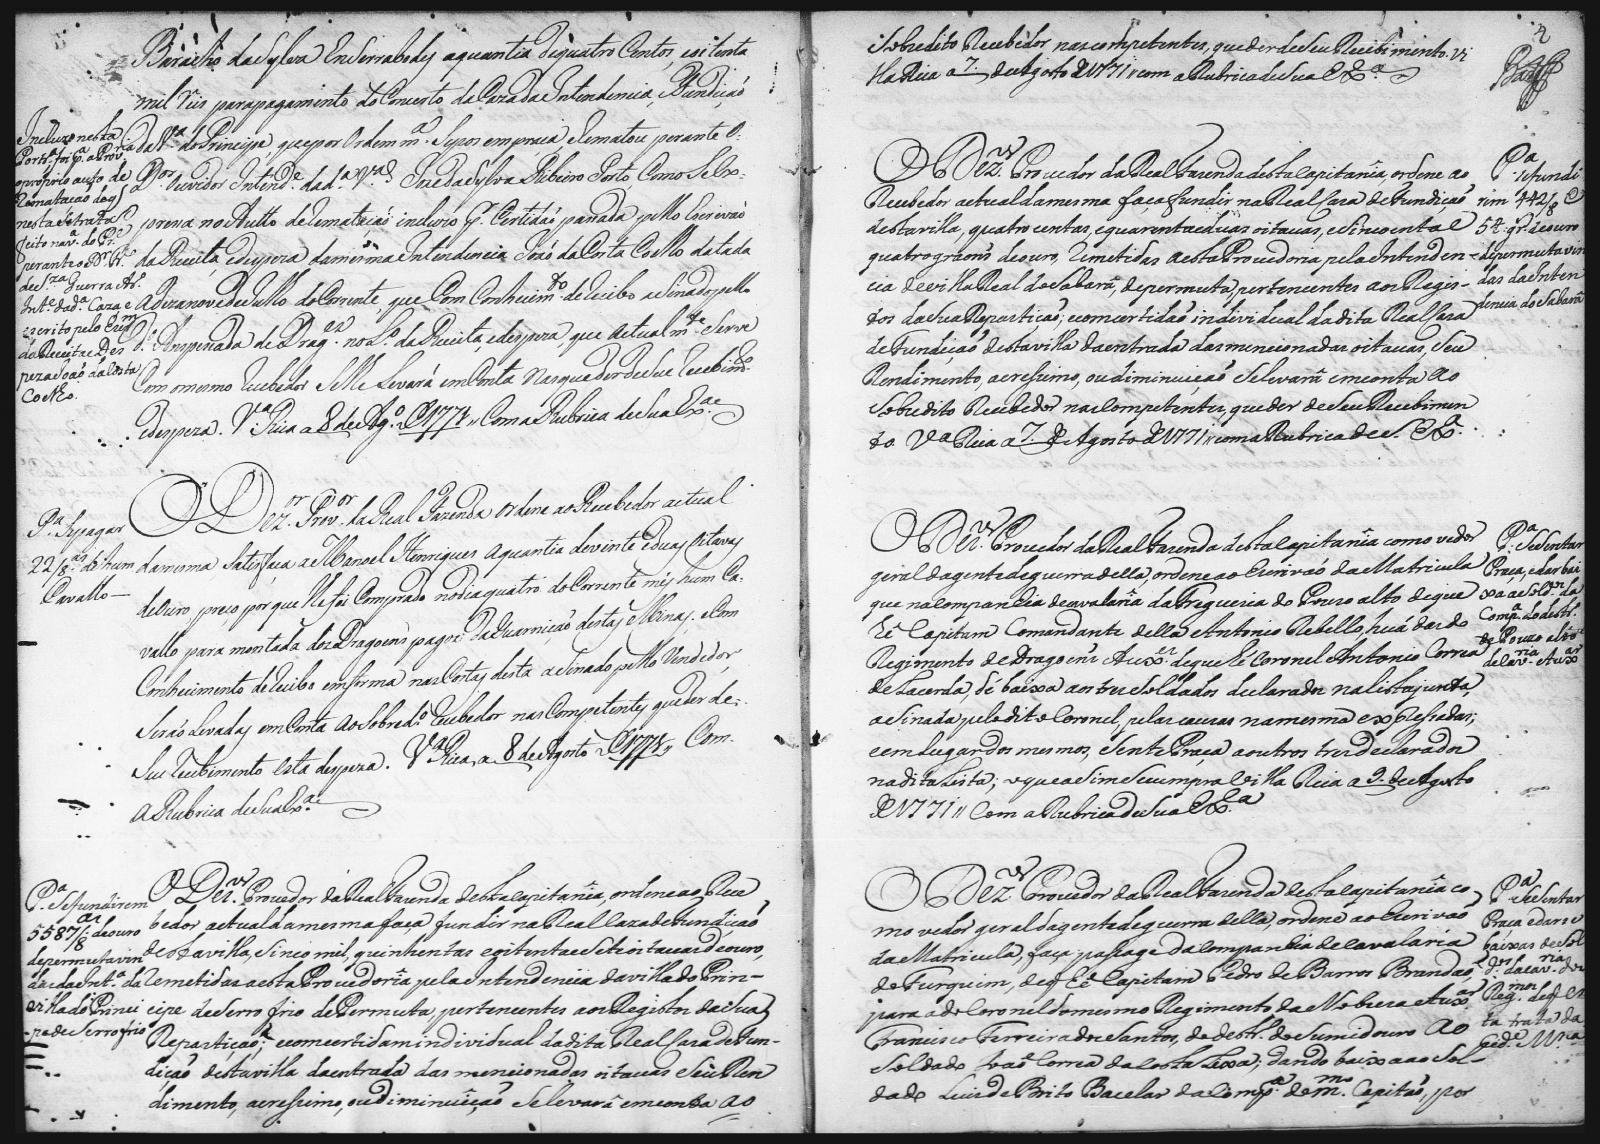 da Sylva En Serrabodes aquantia dequatro Contos, eoitenta
mil Reis para pagamento do Concerto da Caza da Intendencia, e Fundição
da V.ª do Principe, que por Ordem m.ª Se pos em praça e Rematou perante o
D.or Ouvidor Intend.e da d.ª V.ª Joze da Sylva Ribeiro Porto Como Se Ex-
preça no Autto de Rematação incluzo e Certidão passada pello Escrivão
da Receita, e despeza da mesma Intendencia João da Costa Coelho datada
a dezanove de Julho do Corrente, que Com Conhecim.to de Recibo asinado pello
no L.º da Receita e despeza, que actualm.te Serve
Com o mesmo Recebedor Se lhe Levará em Conta Nas que der de Seu Recebim.to
e despeza. V.ª Rica a 8 de Ag.º de 1771 „ Com a Rubrica de Sua Ex.ª
Incluzo nesta
Port.ª foi p.ª a Prov.ria
o proprio auto de
Rematacao de q
nesta Se trata
feito na v.ª do Pr.e
perante o D.or
de Sz.ª Guerra Ar.º
Int.e da d.ª Caza e
escrito pelo Escr.m
da Receita e Des
peza João da Costa
Coelho.
O Dez.or Prov.or da Real Fazenda ordene ao Recebedor actual
da mesma Satisfaça a Manoel Henriques aquantia de vinte e duas Oitavas
de Ouro preço por que lhe foi Comprado no dia quatro do Corrente mês hum Ca-
vallo para montada dos Dragoens pagos da Guarnição destas Minas, e Com
Conhecimento de Recibo em forma nas Costas desta asinado pello Vendedor,
Serão Levadas em Conta ao Sobred.º Recebedor nas Competentes que der de
Seu Recebimento esta despeza. V.ª Rica, a 8 de Agosto de 1771 „ Com
a Rubrica de Sua Ex.ª
P.ª Se pagar
22/8.as de hum
Cavallo
O Dez.or Provedor da Real Fazenda desta Capitania, ordene ao Rece
bedor actual da mesma faça fundir na Real Caza de Fundição
desta villa, Sinco mil, quinhentas e oitenta e Sete oitavas de ouro,
Remetidas a esta Provedoria pela intendencia da villa do Prin-
cipe de Serro frio de Permuta, pertencentes aos Registos da Sua
Repartição; e com certidam individual da dita Real Casa de Fun-
dição desta villa da entrada das mencionadas oitavas Seu Ren
dimento, acressimo, ou diminuição Se levará em conta ao
P.ª Se fundirem
5587/8.as de ouro
de permuta vin
das da Int.ª da
villa do Princi
pe de Serro frio
Sobredito Recebedor nas competentes, que der de Seu Recibimento. Vi
lla Rica a 7 de Agosto de 1771 „ com a Rubrica de Sua Ex.ª
2
O Dez.or Provedor da Real Fazenda desta Capitania, ordene ao
Recebedor actual da mesma faça fundir na Real Casa de Fundição
desta villa, quatro centas, e quarenta e duas oitavas, e Sincoenta e
quatro graons de ouro, Remetidas a esta Provedoria pela Intenden-
cia de villa Real do Sabará, de permuta, pertencentes aos Regis-
tos da Sua Repartição; e com certidão individual da dita Real Casa
de Fundição desta villa da entrada das mencionadas oitavas, Seu
Rendimento, acressimo, ou diminuição Se levará em conta ao
Sobredito Recebedor nas Competentes, que der de Seu Recebimen
to. V.ª Rica a 7 de Agosto de 1771 „ com a Rubrica de S. Ex.ª
P.ª Se fundi
rem 442/8 e
54 gr. de ouro
de permuta vin
das da Inten
dencia do Sabará
O Dez.or Provedor da Real Fazenda desta Capitania como vedor
geral da gente de guerra della, ordene ao Escrivão da Matricula
que na Companhia de cavalaria da Freguesia do Pouso alto de que
hé Capitam Comandante della Antonio Rebello, do
Regimento de Dragoens Aux.es de que hé Coronel Antonio Correa
de Lacerda, dê baixa aos tres Soldados declarados na lista junta,
asinada pelo dito Coronel, pelas causas na mesma expressadas;
e em lugar dos mesmos, Sente Praça a outros tres declarados
na dita Lista; o que asim Se cumpra villa Rica a 9 de Agosto
de 1771 „ Com a Rubrica de Sua Ex.ª
P.ª Se Sentar
Praça, e dar bai
xa a Sold.os da
Comp.ª do destr.
de Pouzo alto
de cav.ria Aux.ar
O Dez.or Provedor da Real Fazenda desta Capitania co
mo vedor geral da gente de guerra della, ordene ao Escrivão
da Matricula, faça passage da Companhia de cavalaria
de Furquim, de q hé Capitam Pedro de Barros Brandão,
para a de Coronel do mesmo Regimento da Nobreza Aux.ar
Francisco Ferreira dos Santos, de destr.º de Sumidouro ao
Soldado João Correa da Costa Lixa; dando baixa ao Sol-
dado Luis de Brito Bacelar da Comp.ª do m.mo Capitão, por
P.ª Se Sentar
Praça e dar se
baixas de Sol
d.os da cav.ria dos
Reg.mos de q es
ta trata da